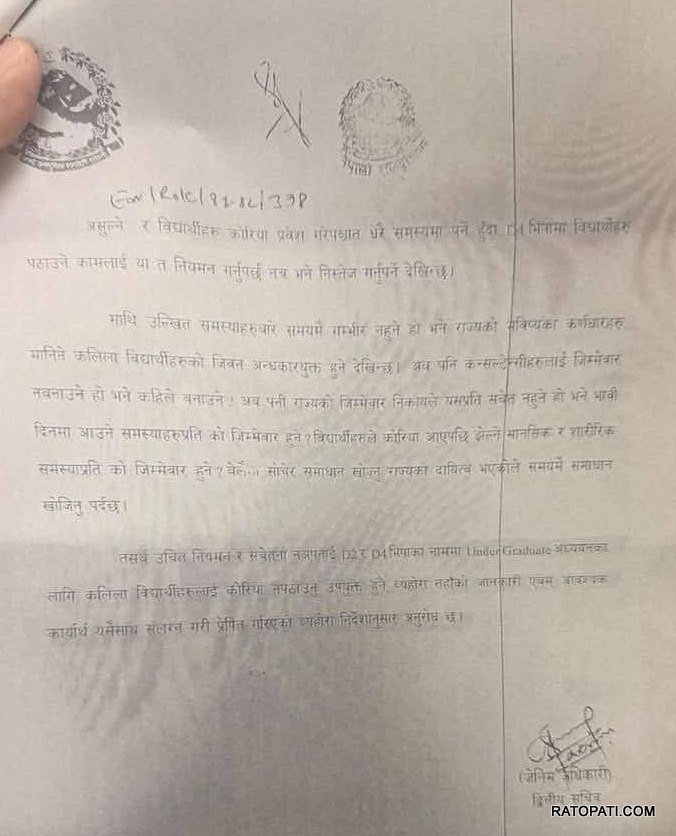 असुल्ने र विद्यार्थीहरु कोरिया प्रवेश गरेपश्चात धेरै समस्यामा पर्ने हुँदा D4 भिषामा विद्यार्थीहरु
पठाउने कामलाई या त नियमन गर्नुपर्छ नत्र भने निस्तेज गर्नुपर्ने देखिन्छ।
माथि उल्लिखित समस्याहरुबारे समयमै गम्भीर नहुने हो भने राज्यको भविष्यका कर्णधारहरु
मानिने कलिला विद्यार्थीहरुको जिवन अन्धकारयुक्त हुने देखिन्छ। अब पनि कन्सल्टेन्सीहरुलाई जिम्मेवार
नबनाउने हो भने कहिले बनाउने? अब पनी राज्यको जिम्मेवार निकायले यसप्रति सचेत नहुने हो भने भावी
दिनमा आउने समस्याहरुप्रति को जिम्मेवार हुने? विद्यार्थीहरुले कोरिया आएपछि झेल्ने मानसिक र शारीरिक
समस्याप्रति को जिम्मेवार हुने? सोचेर समाधान खोज्नु राज्यका दायित्व भएकोले समयमै समाधान
खोजिनु पर्दछ।
तसर्थ उचित नियमन र सचेतना नअपनाई D2 र D4 भिषाका नाममा Under Graduate अध्ययनका
लागि कलिला विद्यार्थीहरुलाई कोरिया नपठाउनु उपयुक्त हुने व्यहोरा तहाँको जानकारी एवम् आवश्यक
कार्यार्थ यसैसाथ संलग्न गरी प्रेषित गरिएको व्यहोरा निर्देशानुसार अनुरोध छ।
अधिकारी)
द्वितीय सचिव
RATOPATI.COM